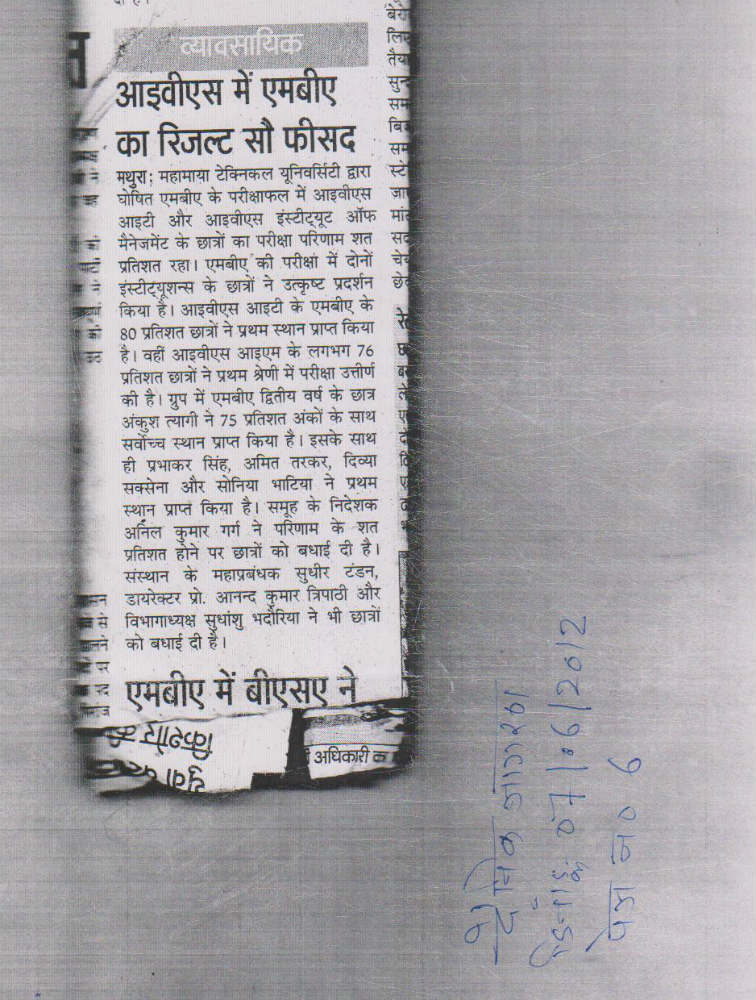 व्यावसायिक
आइवीएस में एमबीए
का रिजल्ट सौ फीसद
मथुरा: महामाया टेक्निकल यूनिवर्सिटी द्वारा
घोषित एमबीए के परीक्षाफल में आइवीएस
आइटी और आइवीएस इंस्टीट्यूट ऑफ
मैनेजमेंट के छात्रों का परीक्षा परिणाम शत
प्रतिशत रहा। एमबीए की परीक्षा में दोनों
इंस्टीट्यूशन्स के छात्रों ने उत्कृष्ट प्रदर्शन
किया है। आइवीएस आइटी के एमबीए के
80 प्रतिशत छात्रों ने प्रथम स्थान प्राप्त किया
है। वहीं आइवीएस आइएम के लगभग 76
प्रतिशत छात्रों ने प्रथम श्रेणी में परीक्षा उत्तीर्ण
की है। ग्रुप में एमबीए द्वितीय वर्ष के छात्र
अंकुश त्यागी ने 75 प्रतिशत अंकों के साथ
सर्वोच्च स्थान प्राप्त किया है। इसके साथ
ही प्रभाकर सिंह, अमित तरकर, दिव्या
सक्सेना और सोनिया भाटिया ने प्रथम
स्थान प्राप्त किया है। समूह के निदेशक
अनिल कुमार गर्ग ने परिणाम के शत
प्रतिशत होने पर छात्रों को बधाई दी है।
संस्थान के महाप्रबंधक सुधीर टंडन,
डायरेक्टर प्रो. आनन्द कुमार त्रिपाठी और
विभागाध्यक्ष सुधांशु भदौरिया ने भी छात्रों
को बधाई दी है।
एमबीए में बीएसए ने
अधिकारी
दैनिक जागरण
दिनाँक 07/06/2012
पेज न० 6